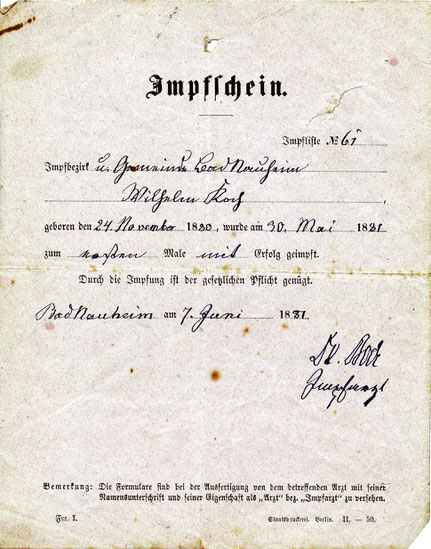 Impfschein.
Impfliste № 61
Impfbezirk u. Gemeinde Bad Nauheim
Wilhelm Koch
geboren den 24 November 1880, wurde am 30. Mai 1881
zum ersten Male mit Erfolg geimpft.
Durch die Impfung ist der gesetzlichen Pflicht genügt.
Bad Nauheim am 7. Juni 1881
Dr. Bode
Impfarzt
Bemerkung: Die Formulare sind bei der Ausfertigung von dem betreffenden Arzt mit seiner
Namensunterschrift und seiner Eigenschaft als „Arzt" bez. „Impfarzt" zu versehen.
For. I. Staatsdruckerei. Berlin. II. — 50.